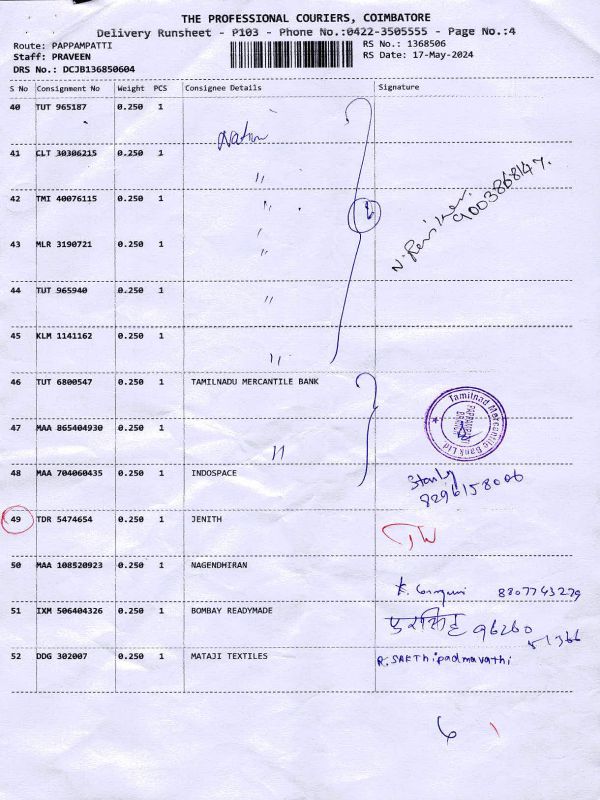 THE PROFESSIONAL COURIERS, COIMBATORE
Delivery Runsheet - P103 - Phone No.:0422-3505555 - Page No.:4
Route: PAPPAMPATTI RS No.: 1368506
Staff: PRAVEEN RS Date: 17-May-2024
DRS No.: DCJB136850604
S No Consignment No Weight PCS Consignee Details Signature
40 TUT 965187 0.250 1
41 CLT 30306215 0.250 1 "
42 TMI 40076115 0.250 1 "
9003868147
43 MLR 3190721 0.250 1 "
44 TUT 965940 0.250 1 "
45 KLM 1141162 0.250 1 "
46 TUT 6800547 0.250 1 TAMILNADU MERCANTILE BANK
Tamilnad Mercantile Bank Ltd
PAPPAMPATTI BRANCH
47 MAA 865404930 0.250 1 "
48 MAA 704060435 0.250 1 INDOSPACE
8296158006
49 TDR 5474654 0.250 1 JENITH
50 MAA 108520923 0.250 1 NAGENDHIRAN
8807743279
51 IXM 506404326 0.250 1 BOMBAY READYMADE
96260
51366
52 DDG 302007 0.250 1 MATAJI TEXTILES R. SAKThipadmavathi
6 1